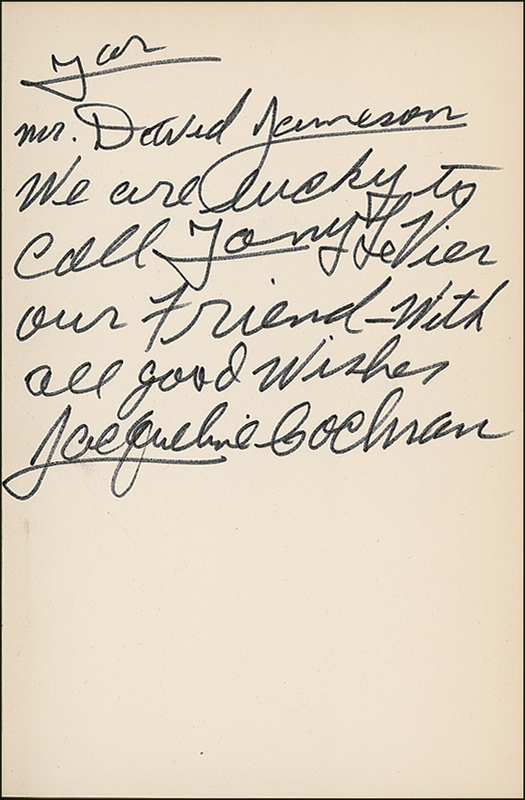 For
Mr. David Jameson
We are lucky to
call Tony LeVier
our Friend - With
all good wishes
Jacqueline Cochran